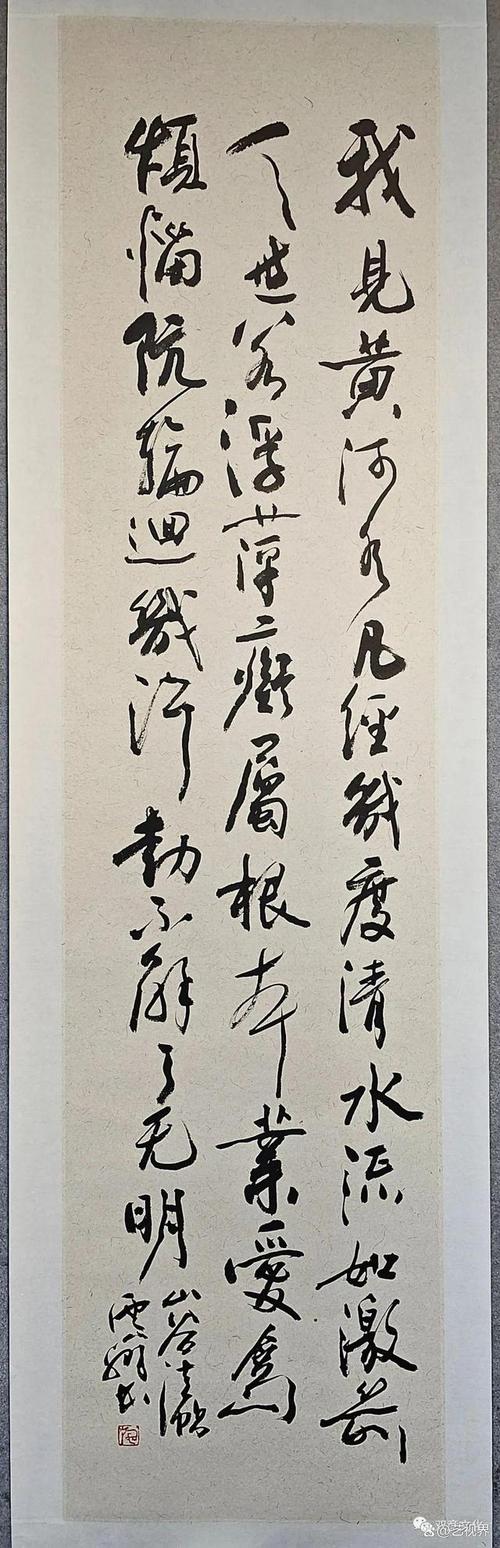 我見黃河水凡經幾度清水流如激箭
人世若浮萍癡屬根本業愛為
煩惱阬輪迴幾許劫不解了无明
山谷詩帖
書
艺视界